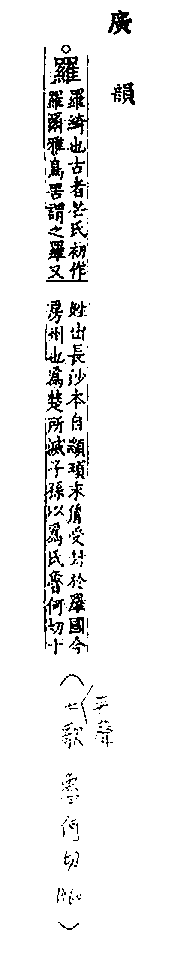 廣韻
○羅
羅綺也古者芒氏初作
羅爾雅鳥罟謂之羅又
姓出長沙本自顓頊末胤受封於羅國今
房州也爲楚所滅子孫以爲氏魯何切十
平聲
(七歌 魯何切 )